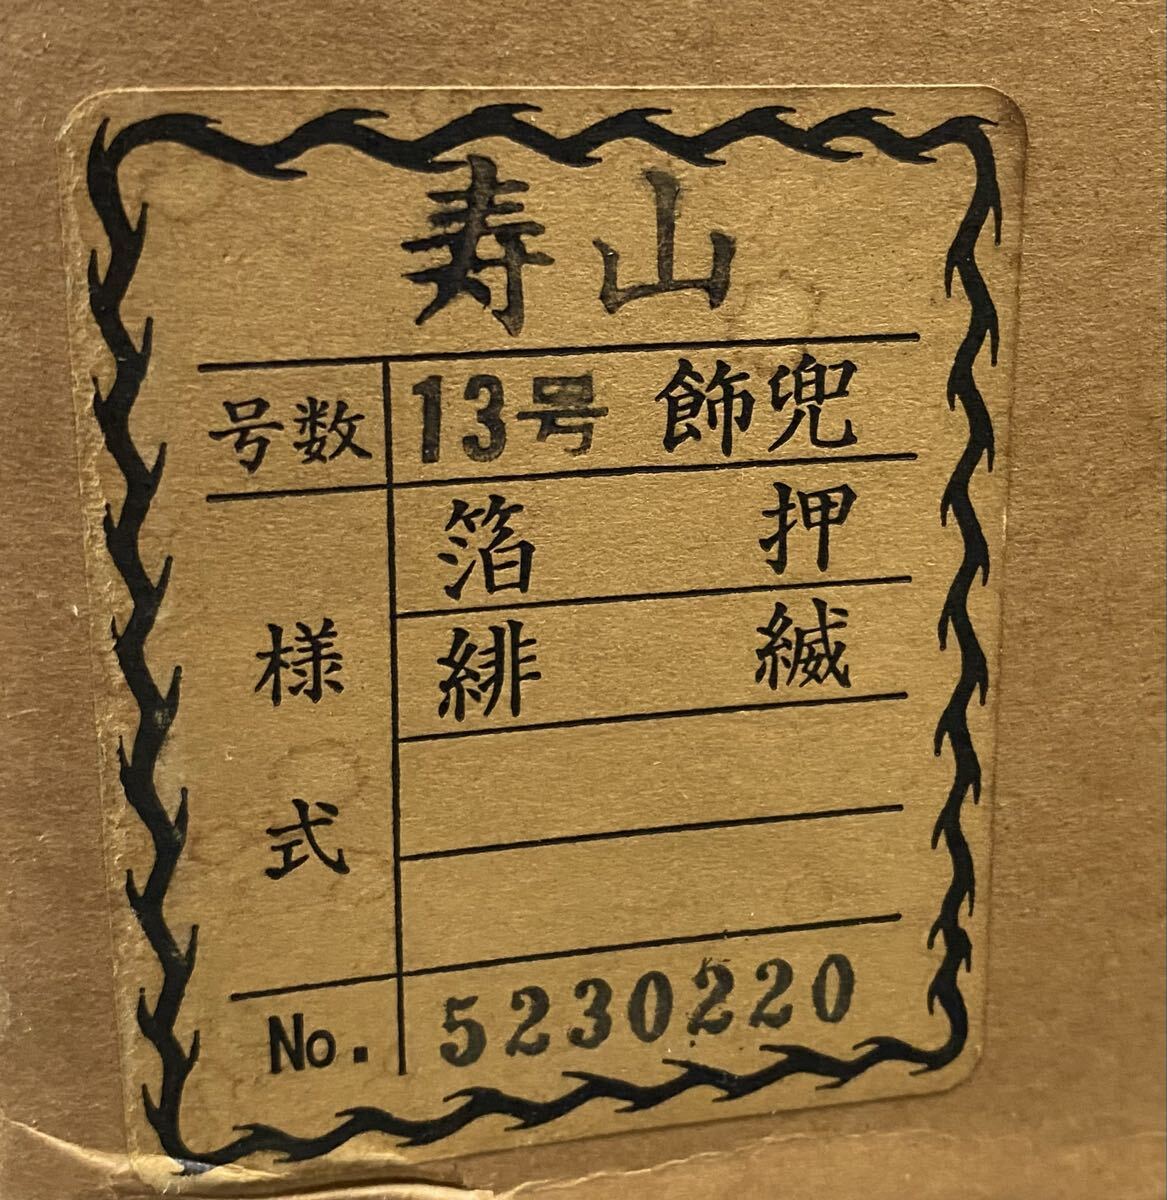 寿山
号数 13号 飾兜
箔 押
緋 縅
様式
No. 5230220